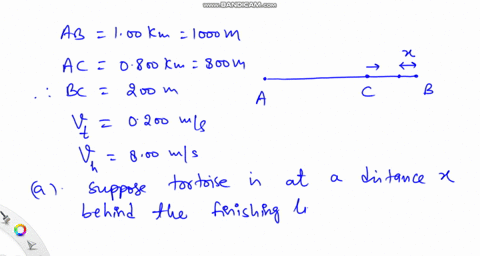 WWW.BANDICAM.COM
AB = 1.00 Km = 1000 m
AC = 0.800 Km = 800 m
∴ BC = 200 m
V_t = 0.200 m/s
V_h = 8.00 m/s
x
A C B
(a). Suppose tortoise is at a distance x
behind the finishing l